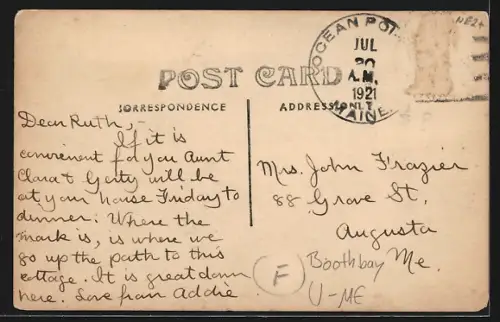 NE2+
OCEAN POI
JUL
20
A.M.
1921
MAINE
POST CARD
CORRESPONDENCE
ADDRESS ONLY
Dear Ruth,-
If it is
convenient for you Aunt
Clara & Gatty will be
at your house Friday to
dinner. Where the
mark is, is where we
go up the path to this
cottage. It is great down
here. Love from Addie
Mrs. John Frazier
88 Grove St,
Augusta
Me.
F
Boothbay
U-ME